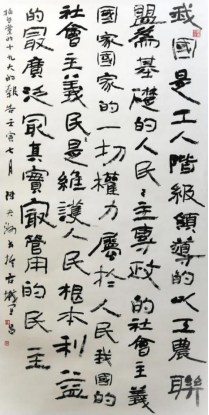 我國是工人階級領導的以工農聯
盟為基礎的人民〻主專政的社會主義
國家國家的一切權力屬於人民我國的
社會主義民是維護人民根本利益
的最廣泛最真實最管用的民主
摘自黨的十九大的報告壬寅七月